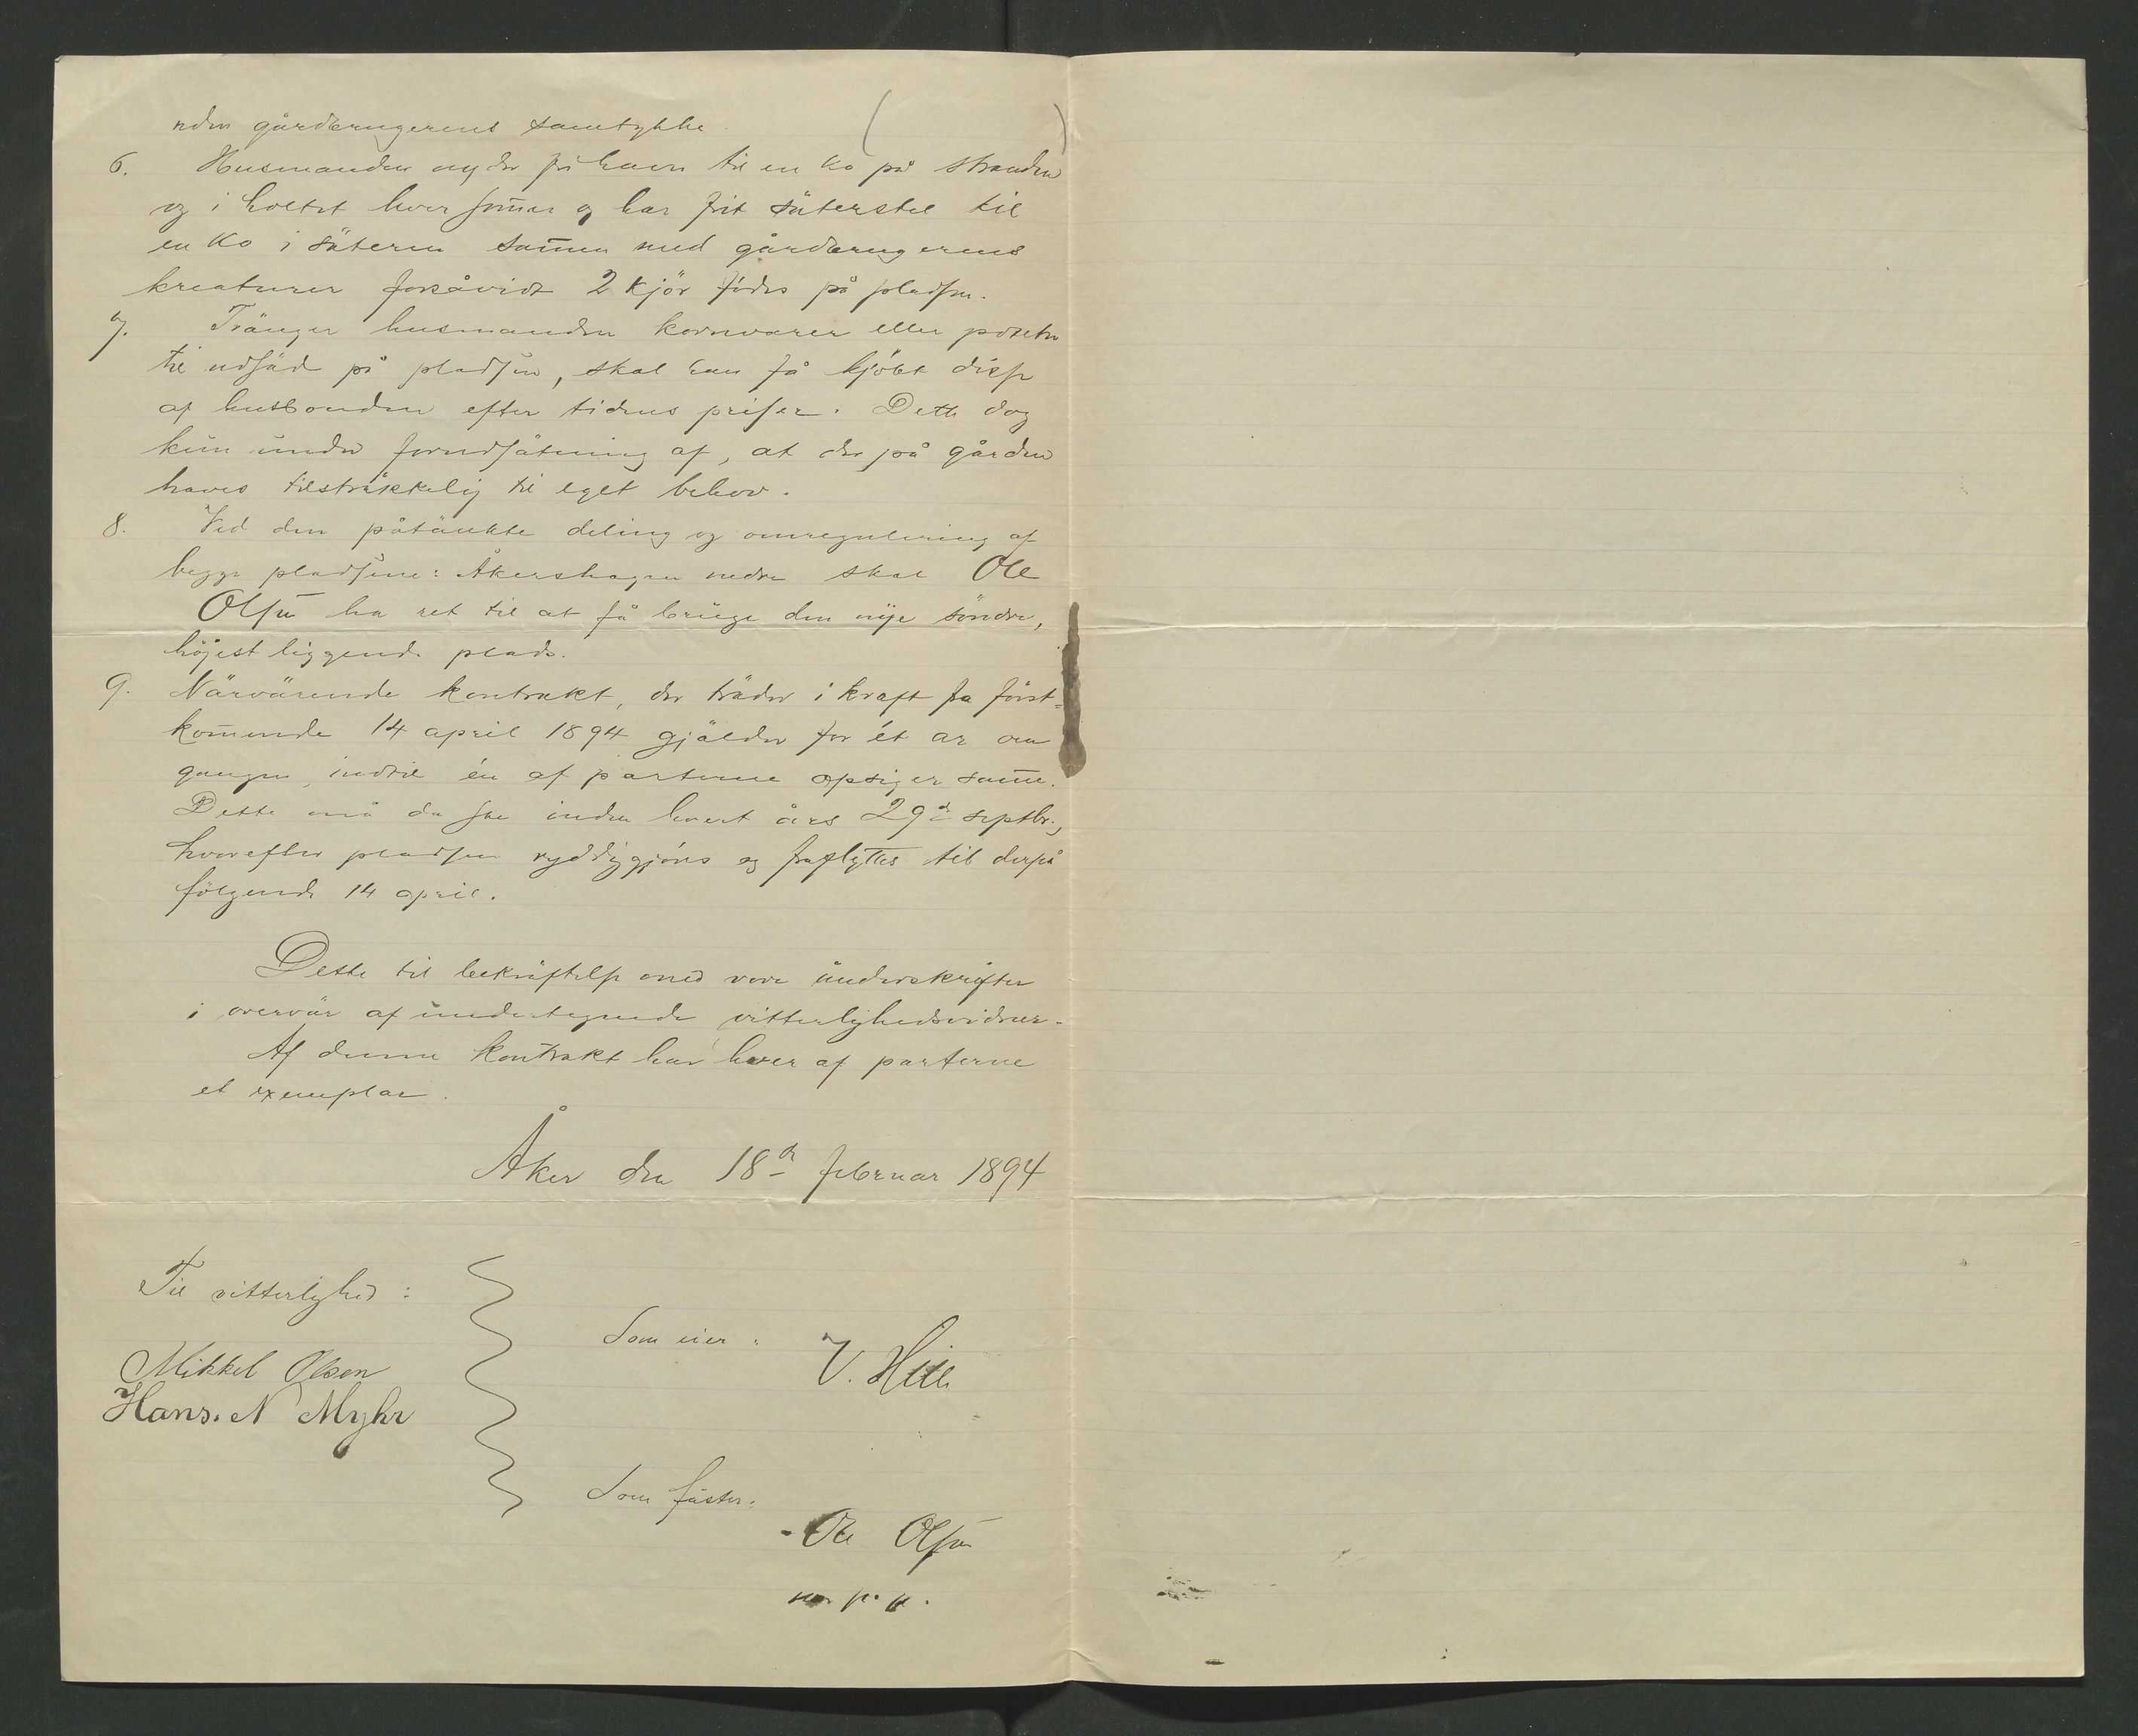 uden gårdbrugerens samtykke.
6. Husmanden nyder fri havn til en ko på stranden
og i holtet hver som̄er og har frit säterstel til
en ko i säteren sam̄en med gårdbrugerens
kreaturer forsåvidt 2 kjör födes på pladsen.
7. Tränger husmanden kornvarer eller poteter
til udsäd på pladsen, skal han få kjöbt disse
af husbonden efter tidens priser. Dette dog
kun under forudsätning af, at der på gården
haves tilsträkkelig til eget behov.
8. Ved den påtänkte deling og omregulering af
begge pladsene: Åkershagen nedre skal Ole
Olsen ha ret til at få bruge den nye söndre,
höjest liggende plads.
9. Närvärende kontrakt, der träder i kraft fra först-
kom̄ende 14 april 1894 gjälder for ét år om
gangen, indtil én af parterne opsiger sam̄e.
Dette må da ske inden hvert års 29de septbr.,
hvorefter pladsen ryddiggjöres og fraflyttes til derpå
fölgende 14 april.
Dette til bekräftelse med vore underskrifter
i overvär af undertegnede vitterlighedsvidner.
Af denne kontrakt har hver af parterne
et exemplar.
Åker den 18de februar 1894
Til vitterlighed:
Mikkel Olsen
Hans. N Myhr
Som eier: V.
Som fäster:
Ole Olsen
m. p. p.